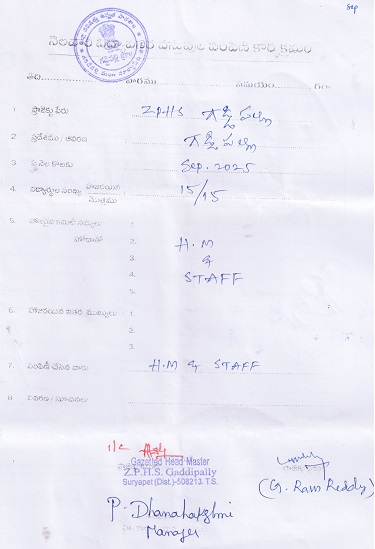 Sep
నెలవారీ విద్యా వసతి వస్తువుల పంపిణి కార్యక్రమం
తేది వారము సమయం గం॥
1. ప్రాజెక్టు పేరు Z.P.H.S గడ్డిపల్లి
2. ప్రదేశము / చిరునామ గడ్డిపల్లి
3. ప్రస్తుత నెల కొరకు Sep. 2025
4. విద్యార్థుల సంఖ్య హాజరయిన 15/15
మొత్తము
5. 1.
హోదాలో 2. H.M
3. &
4. STAFF
5.
6. హాజరయిన ఇతర ముఖ్యులు 1.
2.
3.
7. పంపిణీ చేసిన వారు H.M & STAFF
8. వివరణ / సూచనలు
I/c
Gazetted Head Master
Z.P.H.S. Gaddipally
Suryapet (Dist.)-508213. T.S.
(G. Ram Reddy)
P. Dhanalakshmi
Manager